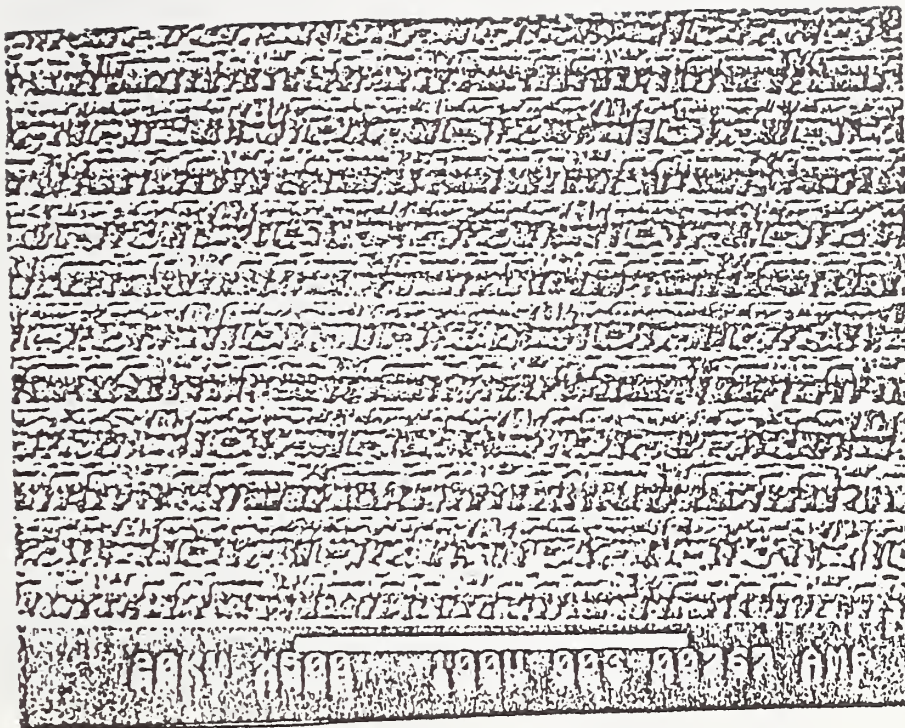 20KV X500 100U 003 00267 AMF